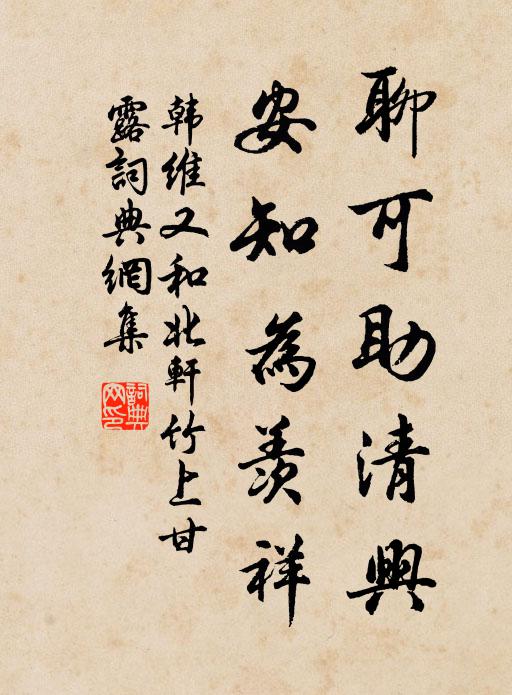 聊可助清興
安知為羨祥
韩维又和北軒竹上甘
露詞典網集
詞典网印